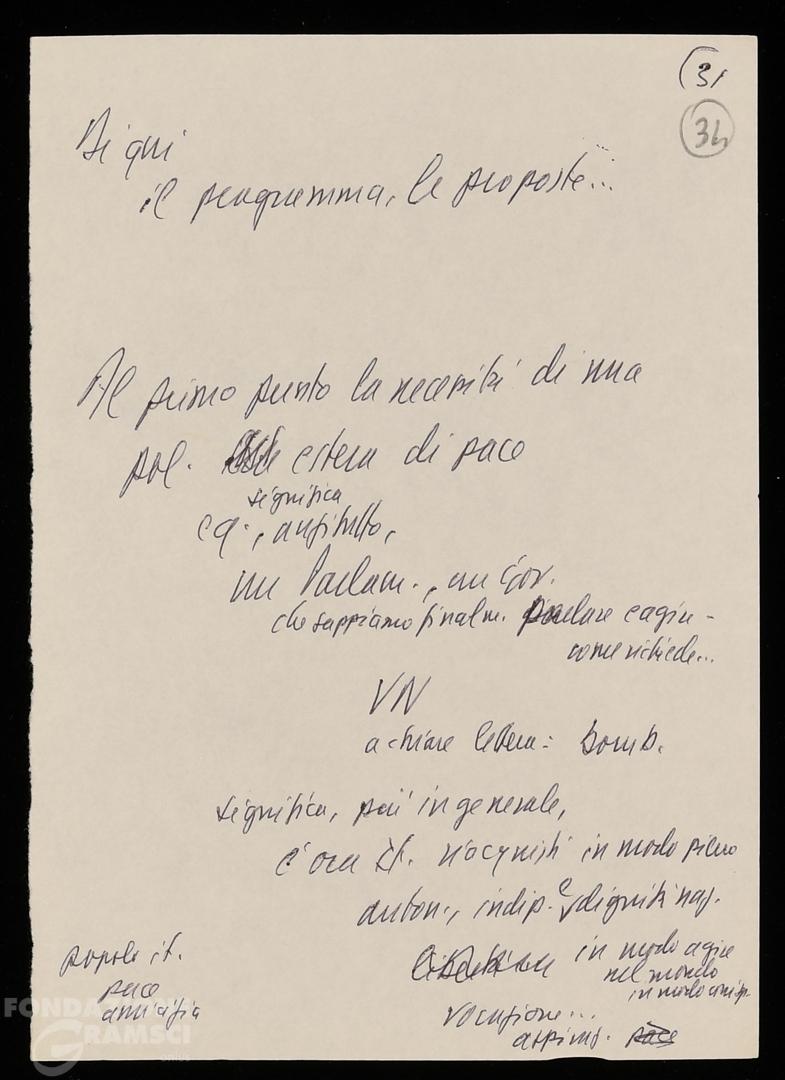 (31
34
Di qui
il programma, le proposte...
Al primo punto la necessità di una
pol. estera di pace
significa
cq., anzitutto,
un Parlam., un Gov.
che sappiamo finalm. parlare e agire -
come richiede...
VN
a chiare lettere: bomb.
significa, più in generale,
è ora It. riacquisti in modo pieno
auton., indip. e dignità naz.
in modo agire
nel mondo
in modo corrisp.
vocazione...
aspiraz. pace
popolo it.
pace
amicizia
FONDAZIONE
GRAMSCI
onlus